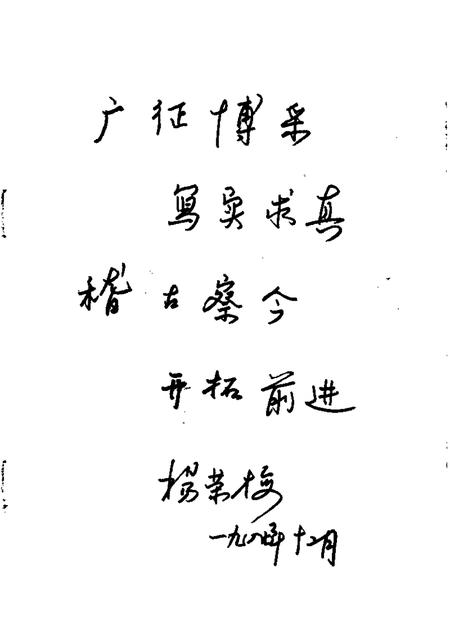 广征博采
写实求真
稽古察今
开拓前进
杨荣梅
一九八年十二月